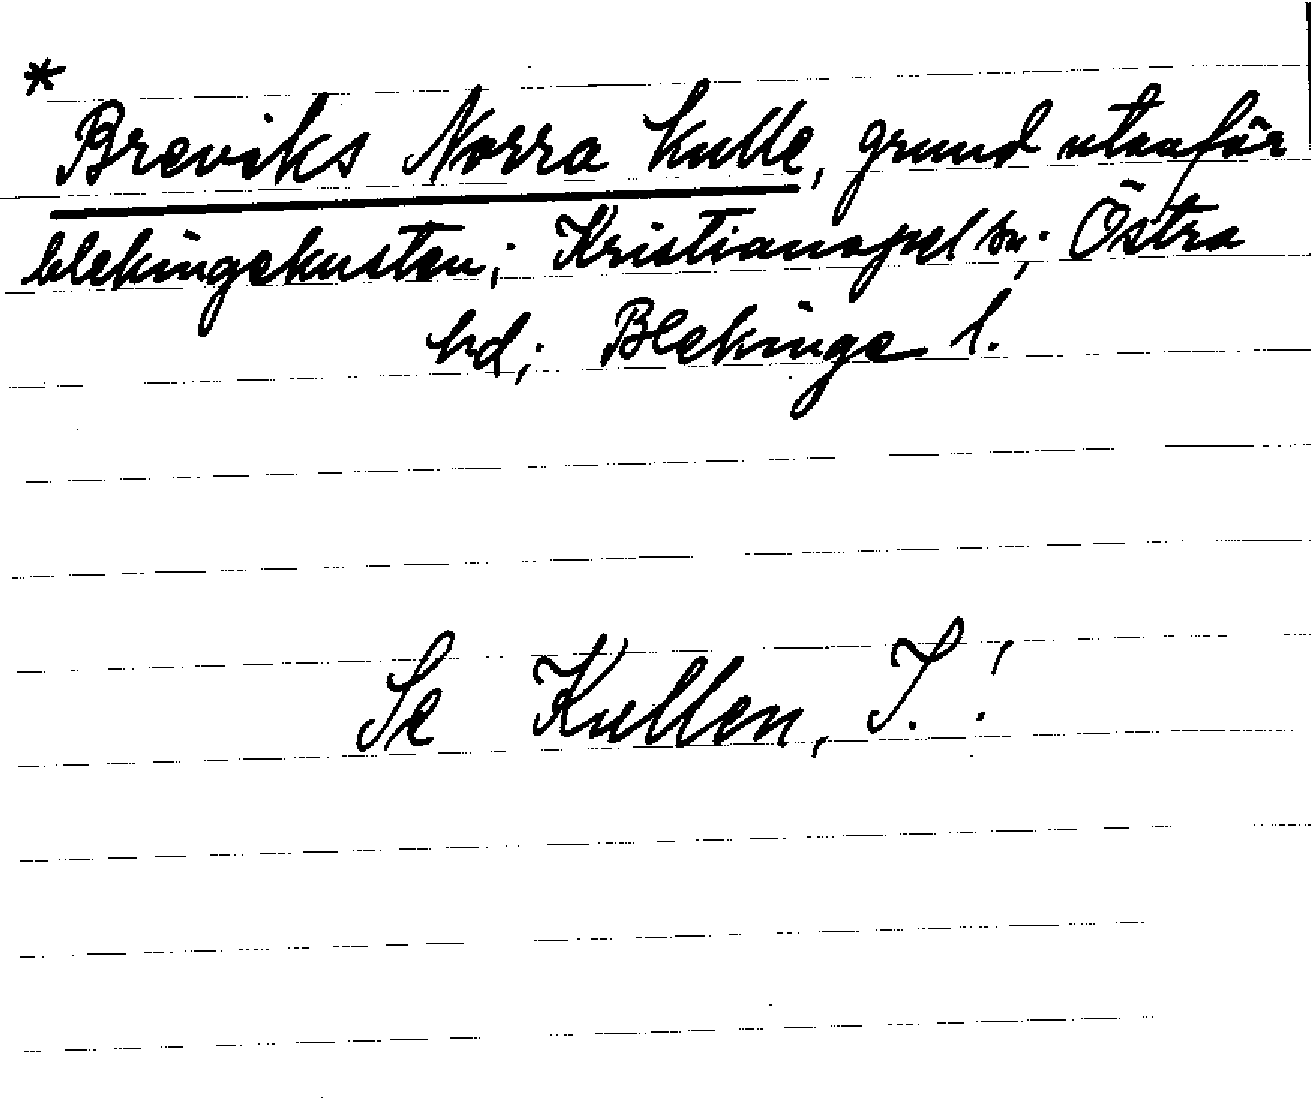 *
Breviks Norra Kulle, grund utanför
blekingekusten; Kristianopel sn; Östra
hd; Blekinge l.
Se Kullen, I.!